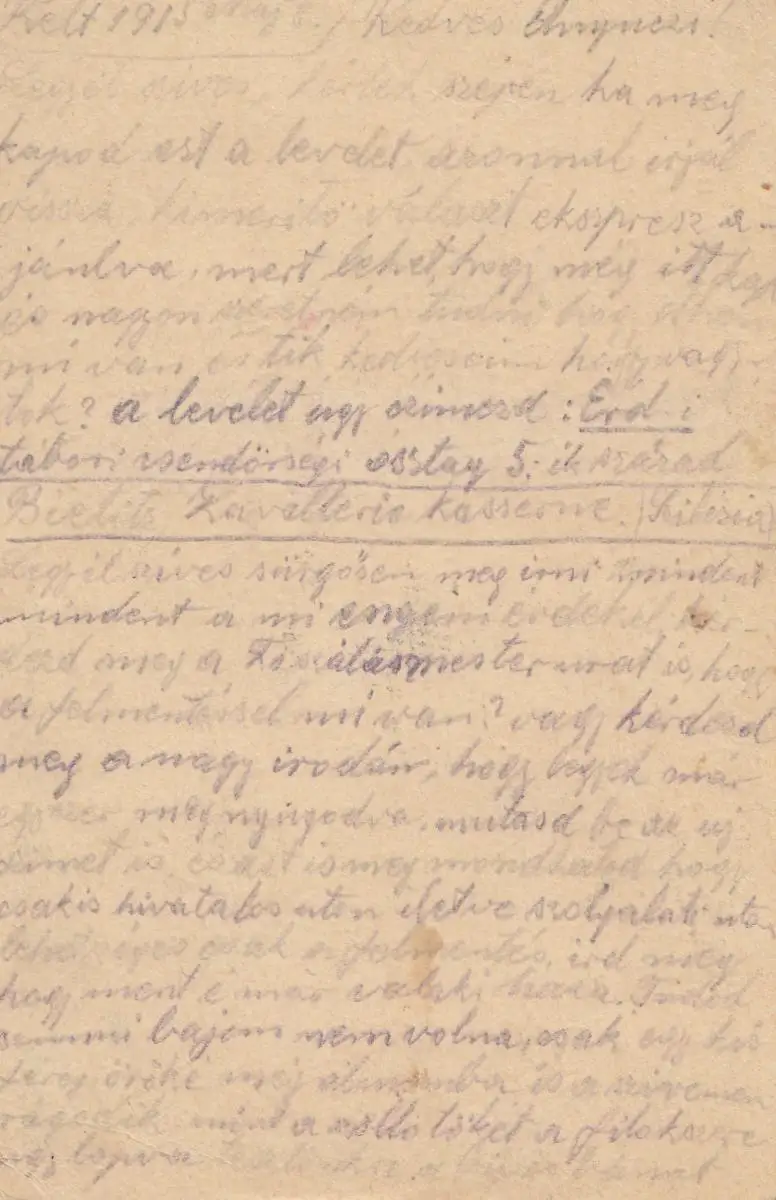 Kelt 1915 Maj 6. Kedves
Legyél szives, kérlek szépen ha meg
kapod ezt a levelet, azonnal irjál
vissza, kimeritő választ ekszpresz a-
jánlva, mert lehet, hogy még itt kap
és nagyon szeretném tudni hogy
mi van és tik kedveseim hogy vagy-
tok? a levelet úgy czimezd: Erd. i
tábori csendőrségi osztag 5.-ik század
Bielitz Kavallerie Kasserne. (Silesia)
Legyél szives sürgősen meg irni mindent
mindent a mi engem érdekel, kér-
dezd meg a Főszálásmester urat is, hogy
a felmentéssel mi van? vagy kérdezd
meg a nagy irodán, hogy legyek már
egyszer megnyugodva, mutasd be az uj
czimet is, és azt is meg mondhatod hogy
csakis hivatalos uton iletve szolgálati uton
lehetséges csak a felmentés, ird meg
hogy ment é már valaki haza. Tudod
semmi bajom nem volna, csak egy kis
féreg őröke még álmomba is a szivemen
rágodik, mint a szőllő tőkét a filokszera